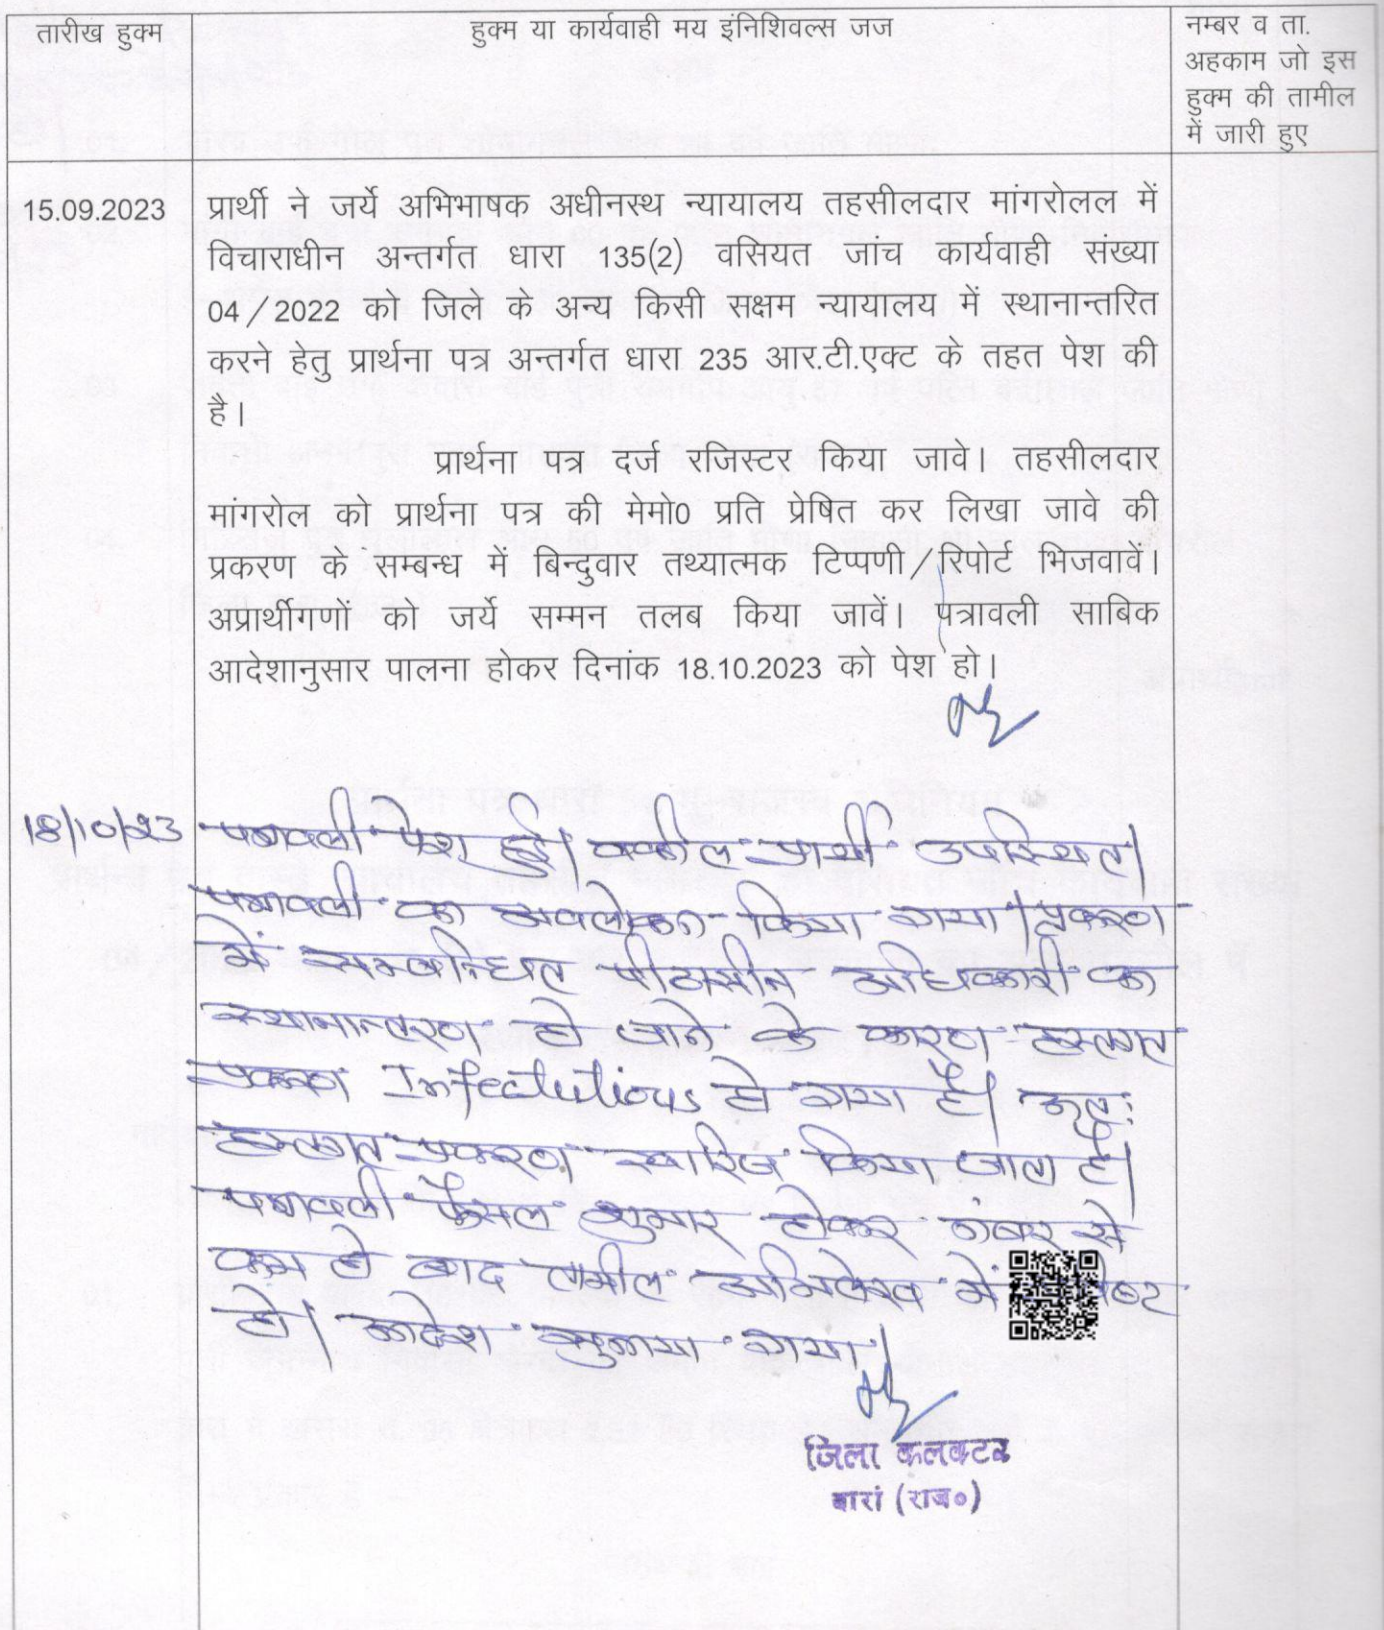 तारीख हुक्म
हुक्म या कार्यवाही मय इंनिशिवल्स जज
नम्बर व ता.
अहकाम जो इस
हुक्म की तामील
में जारी हुए
15.09.2023
प्रार्थी ने जर्ये अभिभाषक अधीनस्थ न्यायालय तहसीलदार मांगरोलल में
विचाराधीन अन्तर्गत धारा 135(2) वसियत जांच कार्यवाही संख्या
04/2022 को जिले के अन्य किसी सक्षम न्यायालय में स्थानान्तरित
करने हेतु प्रार्थना पत्र अन्तर्गत धारा 235 आर.टी.एक्ट के तहत पेश की
है।
प्रार्थना पत्र दर्ज रजिस्टर किया जावे। तहसीलदार
मांगरोल को प्रार्थना पत्र की मेमो0 प्रति प्रेषित कर लिखा जावे की
प्रकरण के सम्बन्ध में बिन्दुवार तथ्यात्मक टिप्पणी/रिपोर्ट भिजवावें।
अप्रार्थीगणों को जर्ये सम्मन तलब किया जावें। पत्रावली साबिक
आदेशानुसार पालना होकर दिनांक 18.10.2023 को पेश हो।
18/10/23
पत्रावली पेश हुई। वकील प्रार्थी उपस्थित।
पत्रावली का अवलोकन किया गया। प्रकरण
में सम्बन्धित पीठासीन अधिकारी का
स्थानान्तरण हो जाने के कारण हस्तगत
प्रकरण Infectutious हो गया है। अतः
हस्तगत प्रकरण खारिज किया जाता है।
पत्रावली फैसल शुमार होकर नंबर से
कम हो बाद तामील अभिलेख में
हो। आदेश सुनाया गया।
जिला कलक्टर
बारां (राज०)